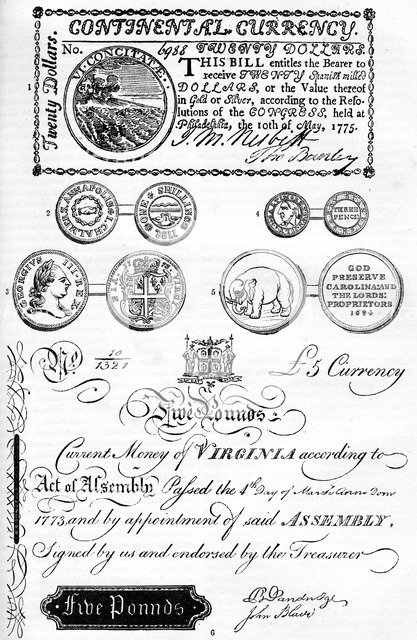 CONTINENTAL CURRENCY.
Twenty Dollars.
No. 6988 TWENTY DOLLARS
VI CONCITATÆ
THIS BILL entitles the Bearer to
receive TWENTY Spanish milled
DOLLARS, or the Value thereof
in Gold or Silver, according to the Reso-
lutions of the CONGRESS, held at
Philadelphia, the 10th of May, 1775.
J. M. Nesbitt
Tho Barclay
1
2
I. CHALMERS, ANNAPOLIS.
ONE SHILLING
4
THREE PENCE
3
GEORGIVS III REX
5
GOD
PRESERVE
CAROLINA: AND
THE LORDS:
PROPRIETORS
1694
No 10
1321
£5 Currency
Five Pounds
Current Money of VIRGINIA according to
Act of Assembly Passed the 4th Day of March Anno Dom
1773, and by appointment of said ASSEMBLY,
Signed by us and endorsed by the Treasurer
Five Pounds
John Blair
6